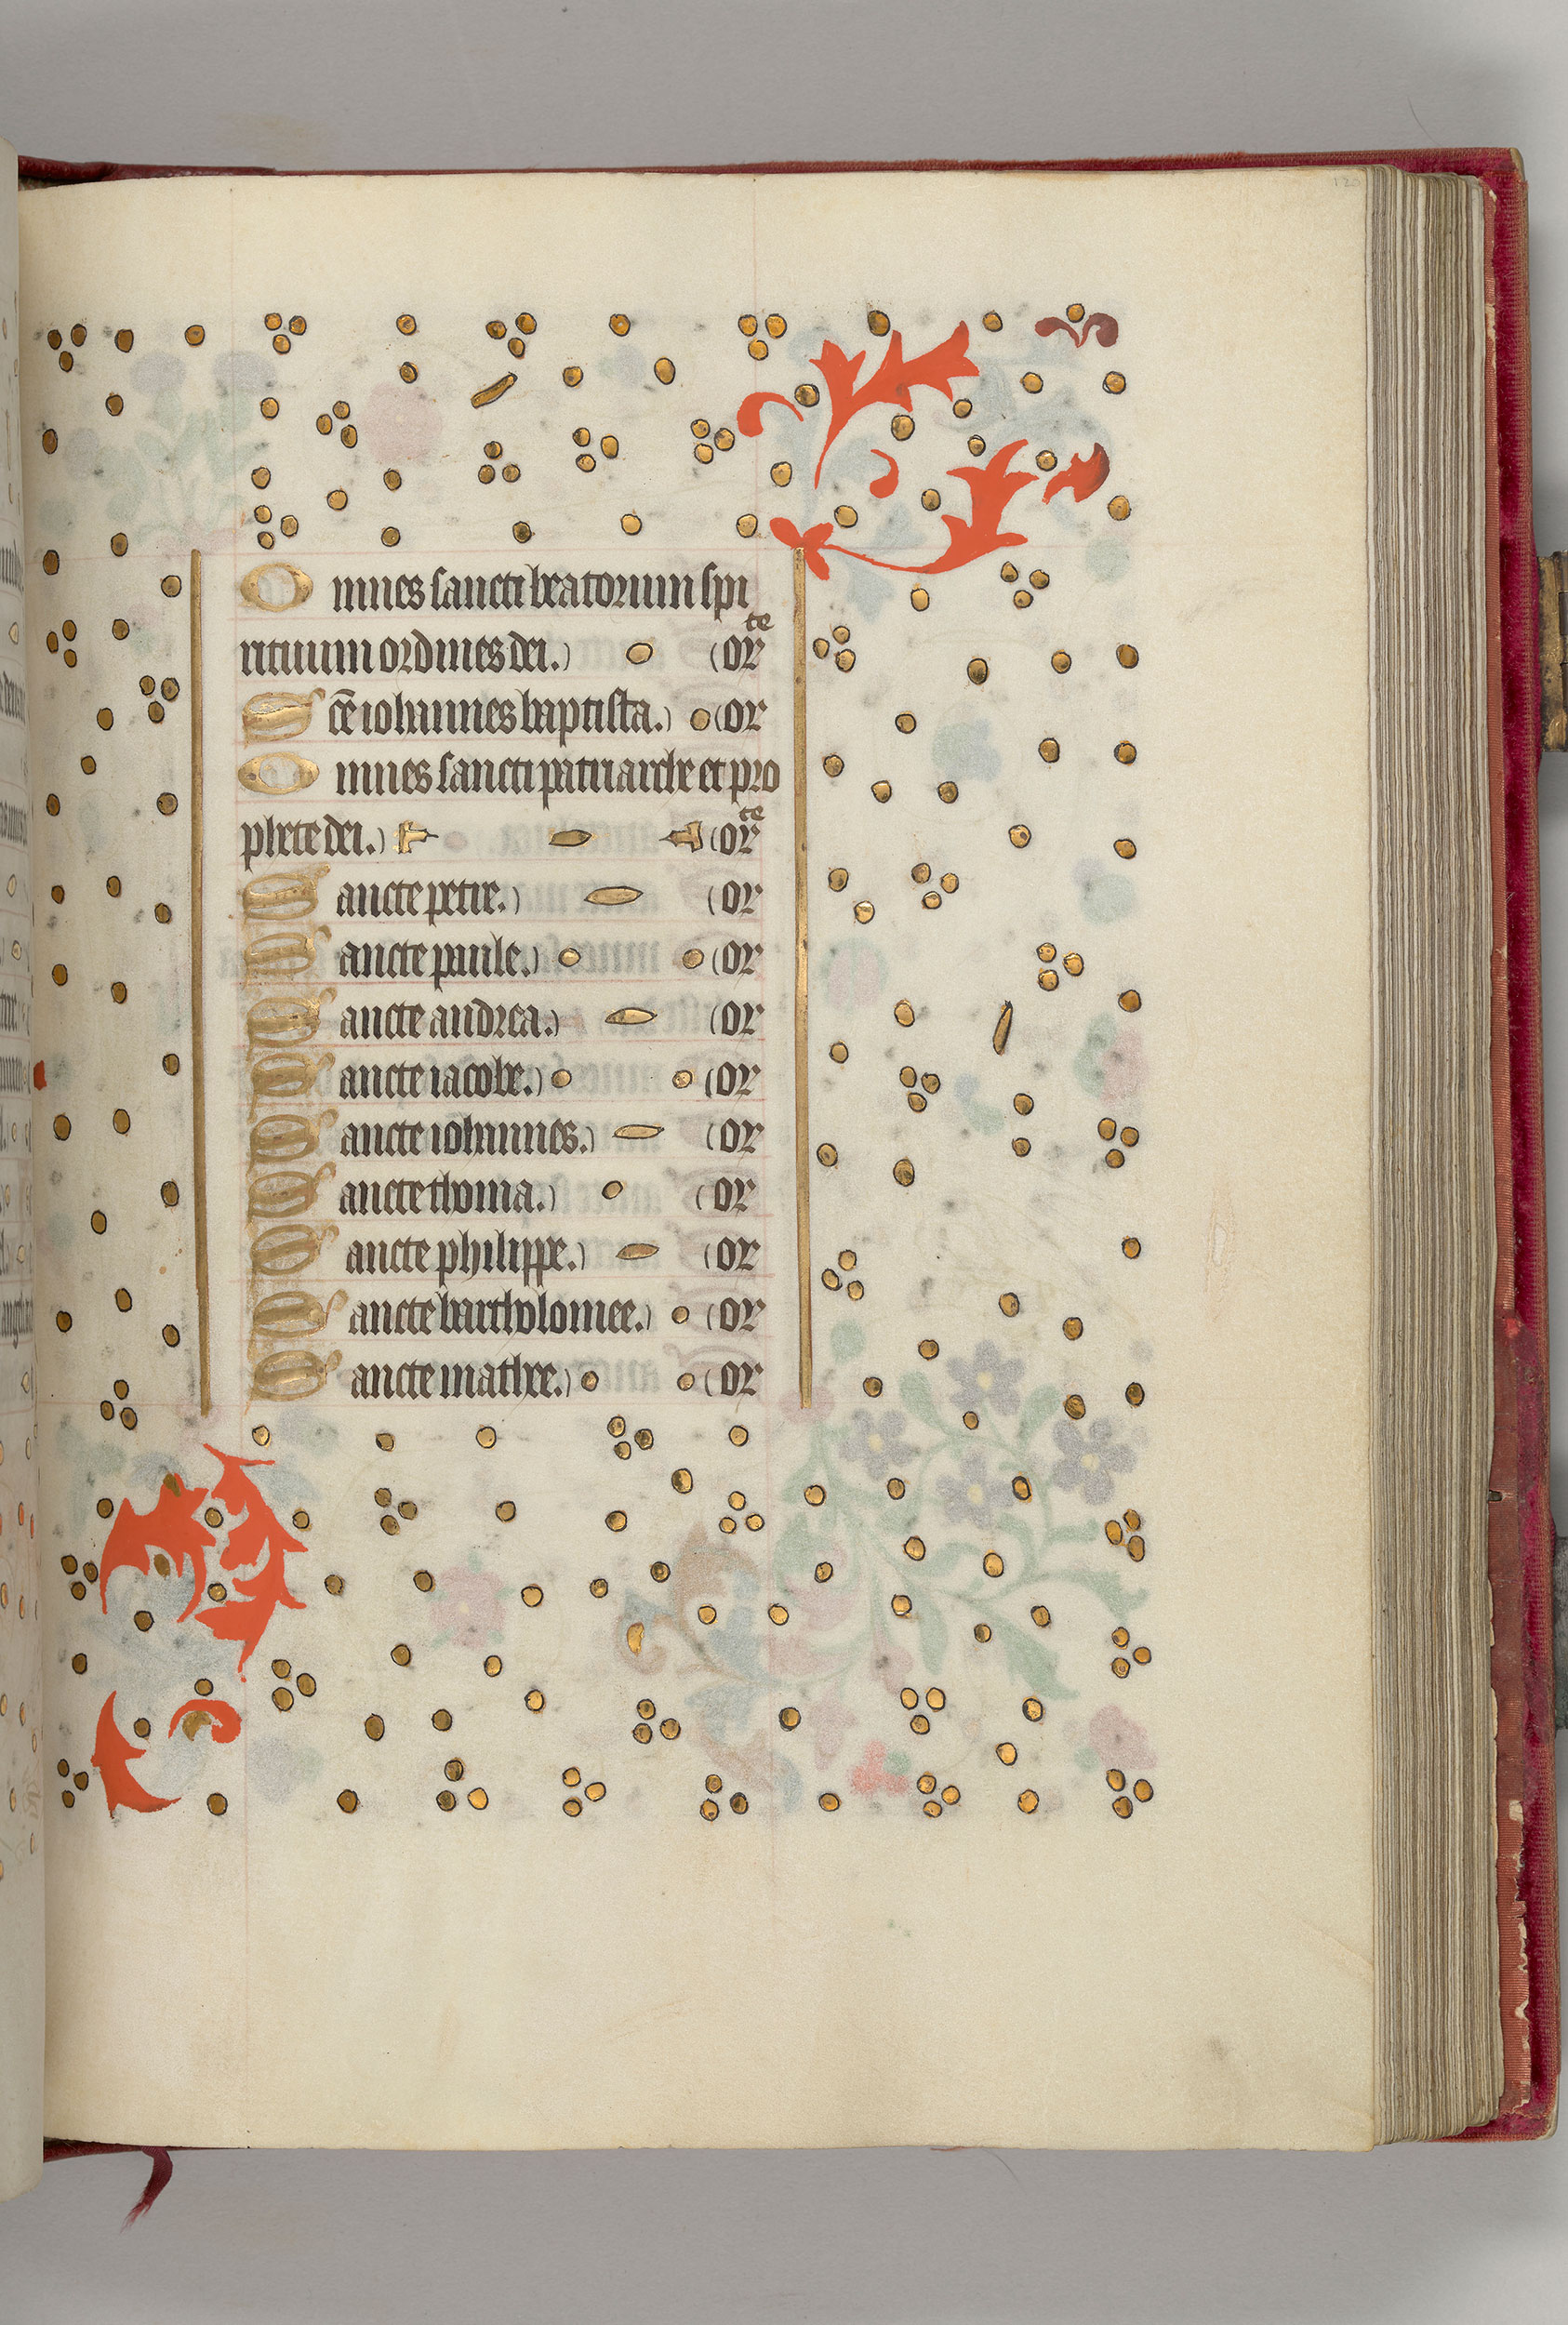 Omnes sancti beatorum spi
rituum ordines dei. orte
Sce iohannes baptista. or
Omnes sancti patriarche et pro
phete dei. orte
Sancte petre. or
Sancte paule. or
Sancte andrea. or
Sancte iacobe. or
Sancte iohannes. or
Sancte thoma. or
Sancte philippe. or
Sancte bartholomee. or
Sancte mathee. or